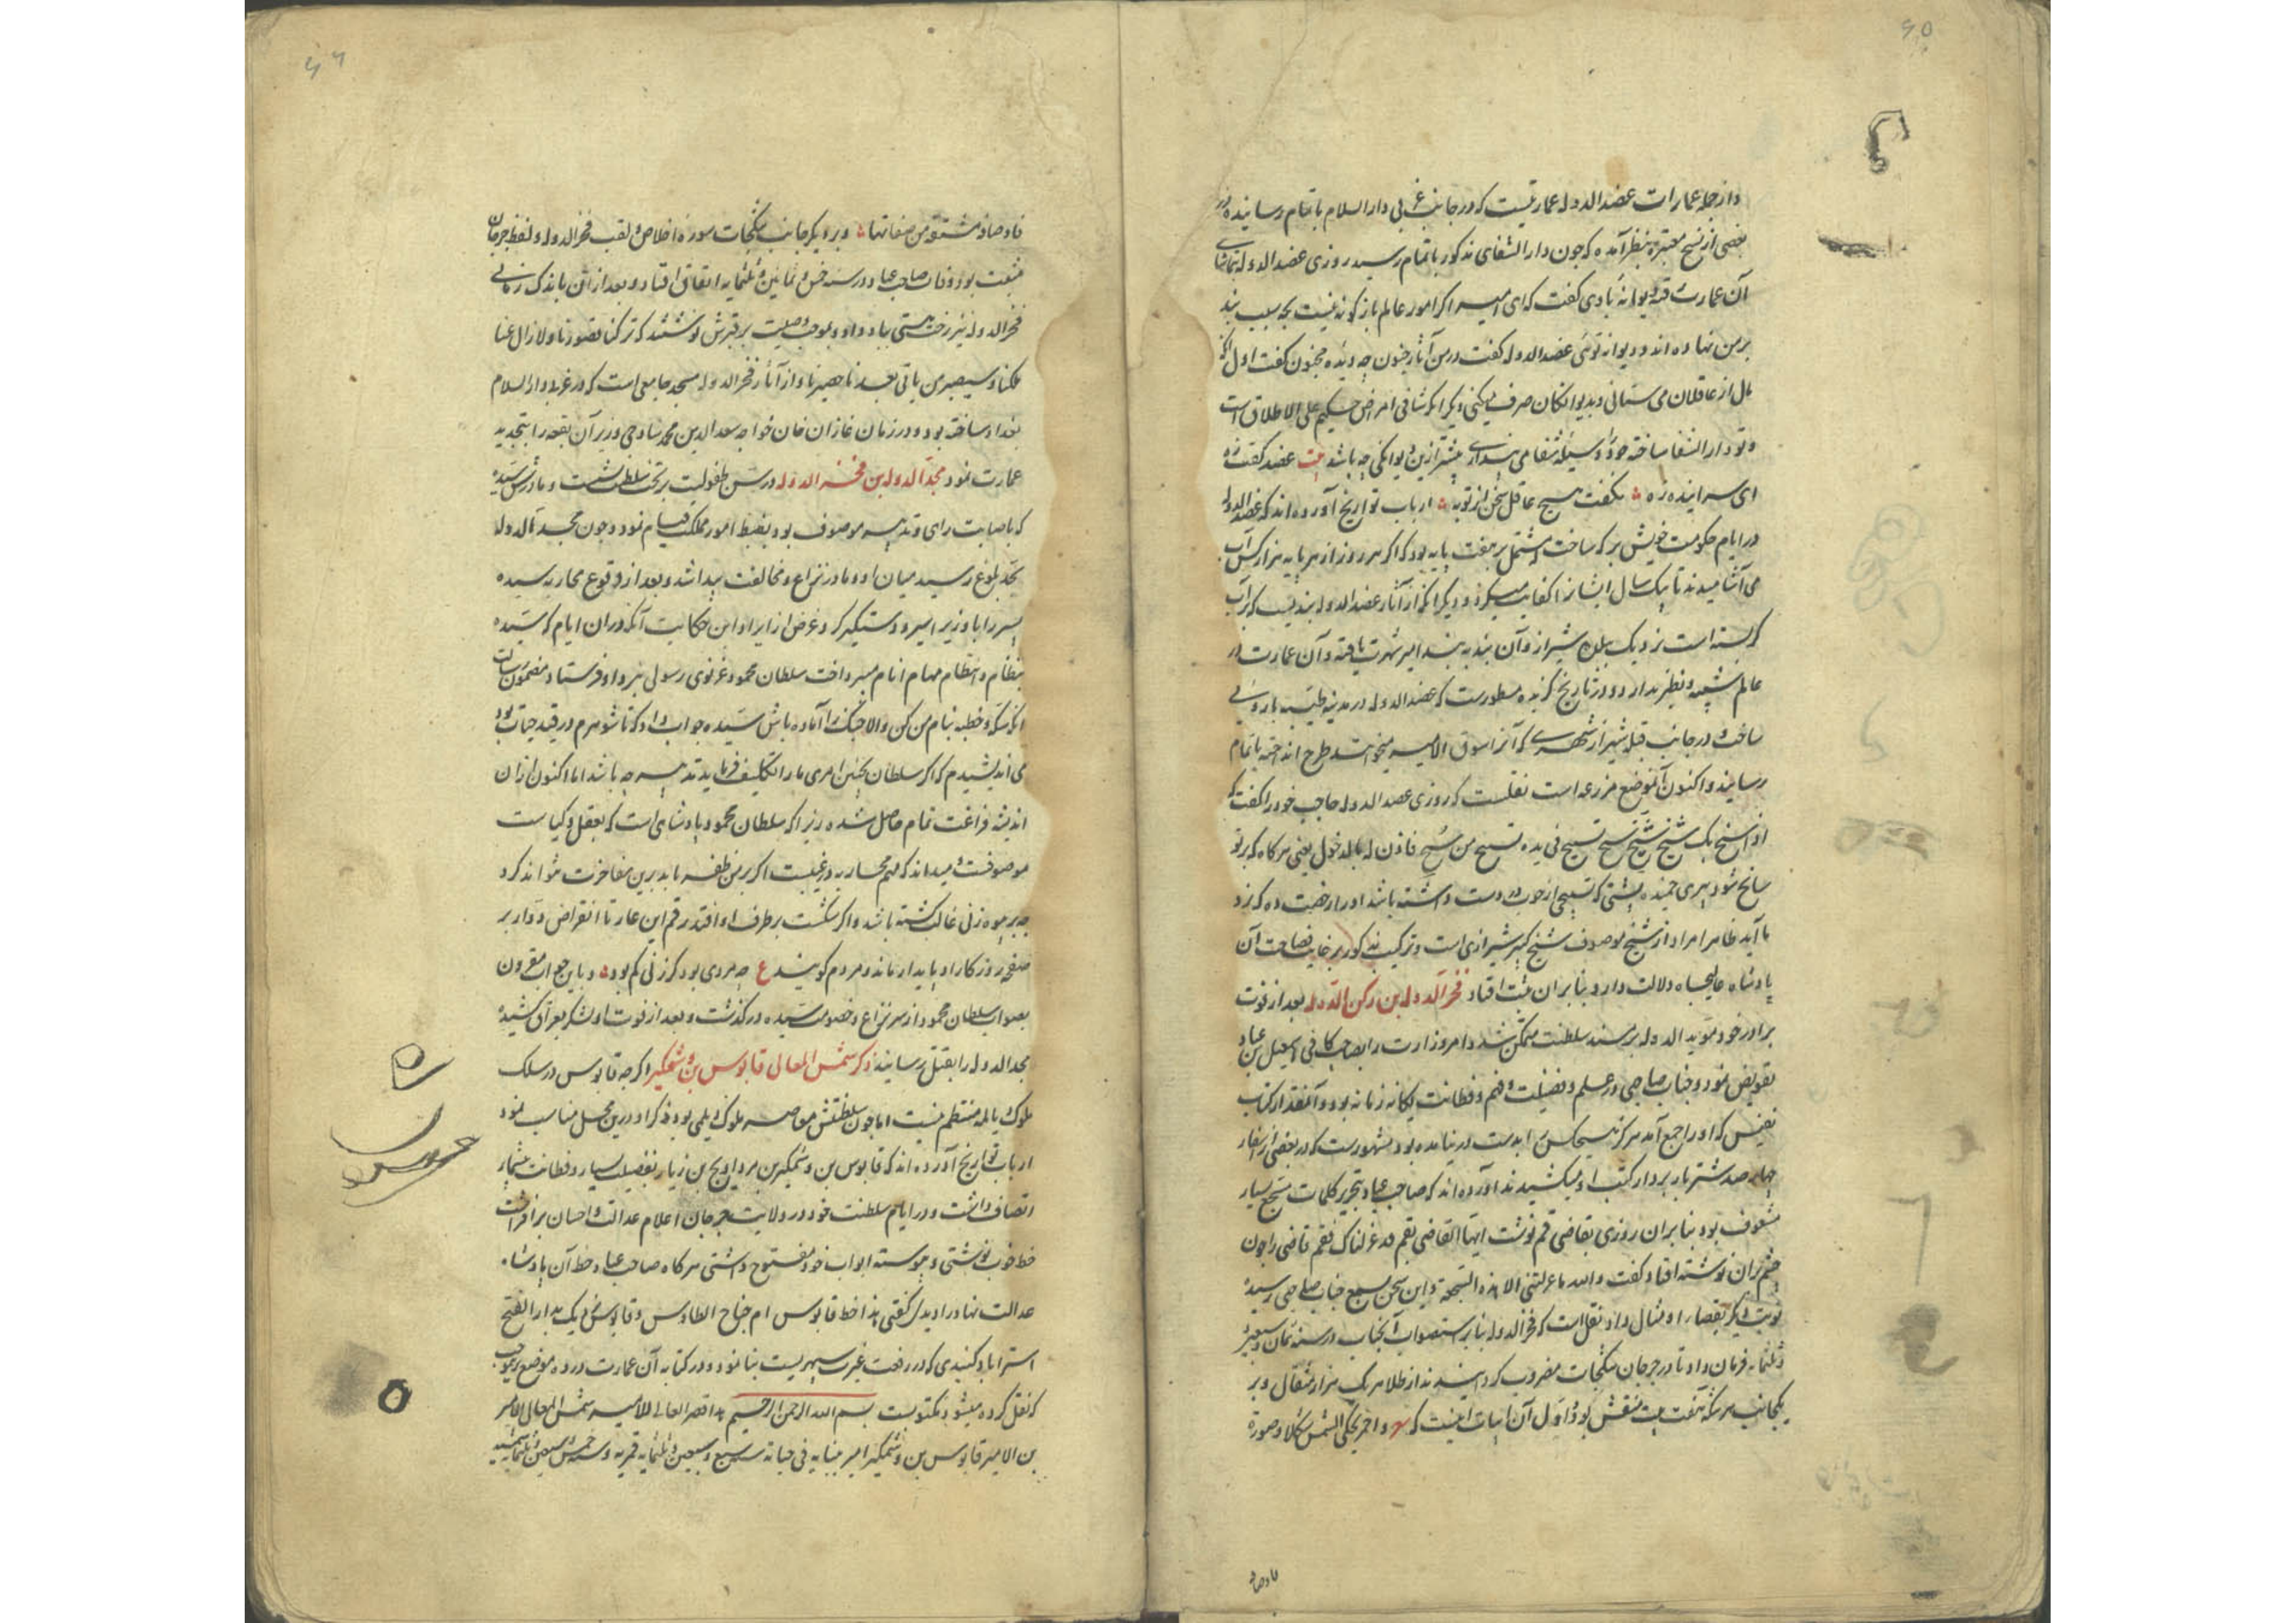 ۶۵
و از جمله عمارات عضد الدوله عمارتیست که در جانب غربی دار السلام باتمام رسانیده و در
بعضی از نسخ معتبره بنظر آمده که چون دار الشفای مذکور باتمام رسید روزی عضد الدوله بتماشای
آن عمارت رفته دیوانهٔ با وی گفت که ای امیر اگر امور عالم باژگونه نیست بچه سبب بند
بر من نهاده‌اند و دیوانه توئی عضد الدوله گفت در من آثار جنون چه دیدهٔ مجنون گفت اول آنکه
مال از عاقلان می ستانی و بدیوانگان صرف میکنی دیگر آنکه شافی امراض حکیم علی الاطلاق است
و تو دار الشفا ساخته خود را وسیلهٔ شفا می پنداری بیشتر ازین دیوانگی چه باشد بیت عضد گفت زه
ای سراینده زه بگفت هیچ عاقل سخن از تو به ارباب تواریخ آورده‌اند که عضد الدوله
در ایام حکومت خویش برکه ساخت مشتمل بر هفت پایه بود که اگر هر روز از هر پایه هزار کس آب
می آشامیدند تا یک سال ایشان را کفایت میکرد و دیگر آنکه از آثار عضد الدوله بندیست که بر آب
کر بسته است نزدیک ببلده شیراز و آن بند به بند امیر شهرت یافته و آن عمارت در
عالم شبیه و نظیر ندارد و در تاریخ گزیده مسطورست که عضد الدوله در مدینه طیبه باروئی
ساخت و در جانب قبله شیراز شهری که آنرا سوق الامیر میخواندند طرح انداخته باتمام
رسانید و اکنون آن موضع مزرعه است نقلست که روزی عضد الدوله حاجب خود را گفت که
اذا سنح بک شیخ شنج شنج تسبیح فی یده تسبیح من شیح فاذن له بالدخول یعنی هرگاه که بر تو
سانح شود پیری خمیده پشتی که تسبیحی از چوب در دست داشته باشد او را رخصت ده که نزد
ما آید ظاهرا مراد از شیخ موصوف شیخ کبیر شیرازی است و ترکیب مذکور بر غایت فصاحت آن
پادشاه عالیجاه دلالت دارد بنابر آن ثبت افتاد فخر الدوله بن رکن الدوله بعد از فوت
برادر خود موید الدوله بر مسند سلطنت متمکن شد و امر وزارت را بصاحب کافی اسمعیل بن عباد
تفویض نمود و جناب صاحبی در علم و فضیلت و فهم و فطانت یگانه زمانه بود و آنمقدار کتاب
نفیس که او را جمع آمد هرگز هیچکس را بدست در نیامده بود مشهورست که در بعضی از اسفار
چهار صد شتر باربردار کتب او میکشیدند آورده‌اند که صاحب عباد بتحریر کلمات مسجع بسیار
مشعوف بود بنابر آن روزی بقاضی قم نوشت ایها القاضی بقم قد عزلناک فقم قاضی را چون
چشم بران نوشته افتاد گفت والله ما عزلتنی الا هذه السجعة و این سخن بسمع جناب صاحبی رسیده
نوبت دیگر بقضا را و مثال داد نقل است که فخر الدوله بنابر استصواب آنجناب در سنه ثمان و سبعین و
ثلثمایه فرمان داد تا در جرجان سکجات مضروب کردانیدند از طلا هر یک هزار مثقال و بر
یکجانب هر سکه هفت بیت منقش بود و اول آن ابیات اینست که و احمر یحکی الشمس شکلا و صورة
فاوصا
۶۶
فاوصافه مشتقة من صفاتها و بر دیگر جانب سکجات سوره اخلاص و لقب فخر الدوله و لفظ جرجان
مثبت بود وفات صاحب عباد در سنه خمس و ثمانین و ثلثمایه اتفاق افتاد و بعد از آن باندک زمانی
فخر الدوله نیز رخت هستی بباد داد و بموجب وصیت بر قبرش نوشتند که ترکنا قصورنا و لا زال عنا
ملکنا و سیصبر من باقی بعد ناصیرنا و از آثار فخر الدوله مسجد جامعی است که در غربی دار السلام
بغداد ساخته بود و در زمان غازان خان خواجه سعد الدین محمد ساوجی وزیر آن بقعه را بتجدید
عمارت نمود مجد الدوله بن فخر الدوله در سن طفولیت بر تخت سلطنت نشست و مادرش سیده
که باصابت رای و تدبیر موصوف بود بضبط امور مملکت قیام نمود و چون مجد الدوله
بحد بلوغ رسید میان او و مادر نزاع و مخالفت پیدا شد و بعد از وقوع محاربه سیده
پسر را با وزیر اسیر و دستگیر کرد غرض از ایراد این حکایت آنکه در ان ایام که سیده
بنظام و انتظام مهام انام میپرداخت سلطان محمود غزنوی رسولی نزد او فرستاد مضمون رسالت
آنکه سکه و خطبه بنام من کن و الا جنک را آماده باش سیده جواب داد که تا شوهرم در قید حیات بود
می اندیشیدم که اگر سلطان بچنین امری ما را تکلیف فرماید تدبیر چه باشد اما اکنون از ان
اندیشه فراغت تمام حاصل شده زیرا که سلطان محمود پادشاهی است که بعقل و کیاست
موصوفست و میداند که مهم محاربه در غیبست اگر بر من ظفر یابد برین مفاخرت نتواند کرد
چه بر بیوه زنی غالب گشته باشد و اگر شکست بر طرف او افتد رقم این عار تا انقراض دوار بر
صفحه روزگار او پایدار ماند و مردم گویند ع چه مردی بود کز زنی کم بود و باین جواب مقرون
بصواب سلطان محمود از سر نزاع و خصومت سیده در گذشت و بعد از فوت او لشکر بعراق کشیده
مجد الدوله را بقتل رسانید ذکر شمس المعالی قابوس بن وشمگیر اگر چه قابوس در سلک
ملوک دیالمه منتظم نیست اما چون سلطنتش معاصر ملوک دیلمی بود ذکر او درین محل مناسب نمود
ارباب تواریخ آورده‌اند که قابوس بن وشمگیر بن مرداویج بن زیار بفضیلت بسیار و فطانت بیشمار
اتصاف داشت و در ایام سلطنت خود در ولایت جرجان اعلام عدالت و احسان بر افراشت
خط خوب نوشتی و پیوسته ابواب خود مفتوح داشتی هرگاه صاحب عباد خط آن پادشاه
عدالت نهاد را دیدی گفتی هذا خط قابوس ام جناح الطاوس و قابوس نزدیک بدار الفتح
استراباد گنبدی که در رفعت غیرت سپهریست بنا نمود و در کتابه آن عمارت در ده موضع بموجبی
که نقل کرده میشود مکتوبست بسم الله الرحمن الرحیم هذا قصر العالی للامیر شمس المعالی الامیر
بن الامیر قابوس بن وشمگیر امر ببنایه فی حیاته سنه سبع و سبعین و ثلثمایه قمریه و سنه خمس و سبعین و ثلثمایه شمسیه